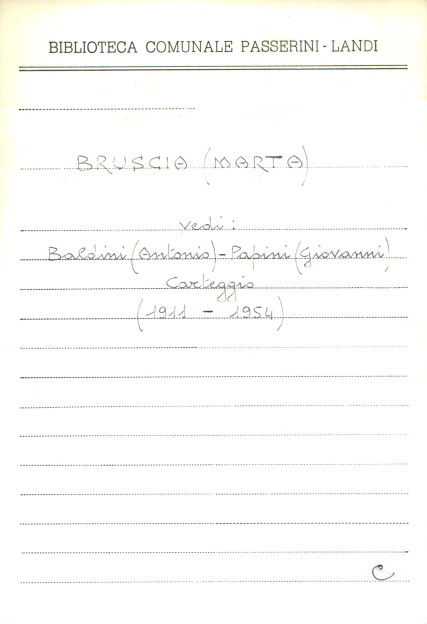 BIBLIOTECA COMUNALE PASSERINI - LANDI
BRUSCIA (MARTA)
vedi:
Baldini (Antonio) - Papini (Giovanni)
Carteggio
(1911 - 1954)
C